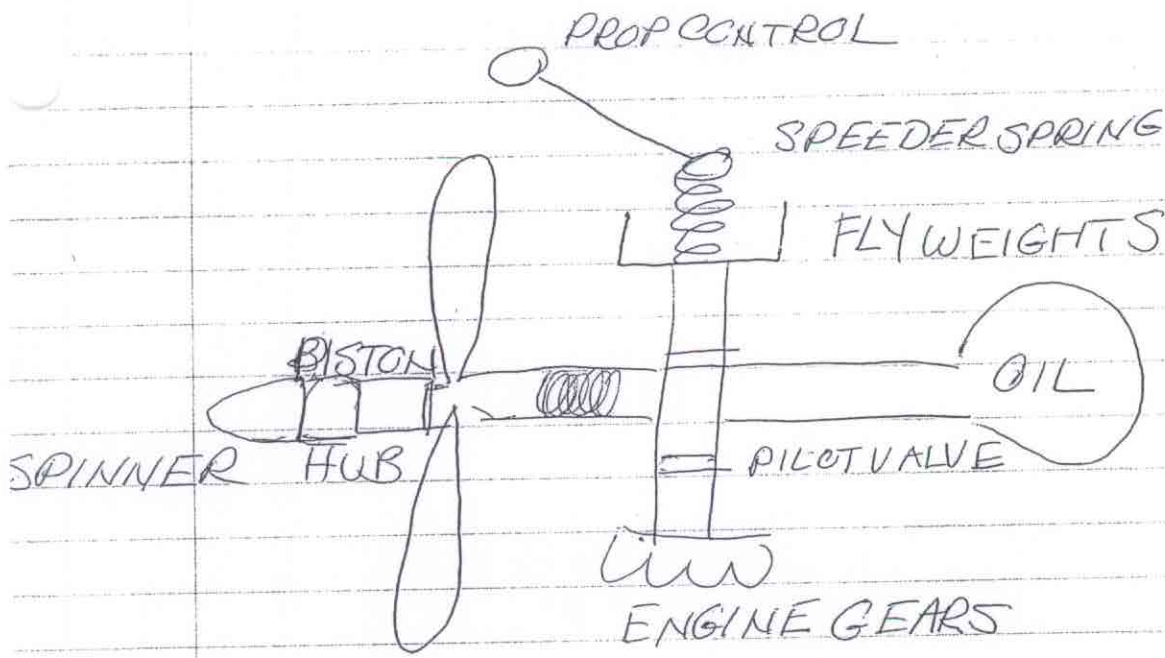 PROP CONTROL
SPEEDER SPRING
FLYWEIGHTS
PISTON
OIL
SPINNER HUB
PILOT VALVE
ENGINE GEARS